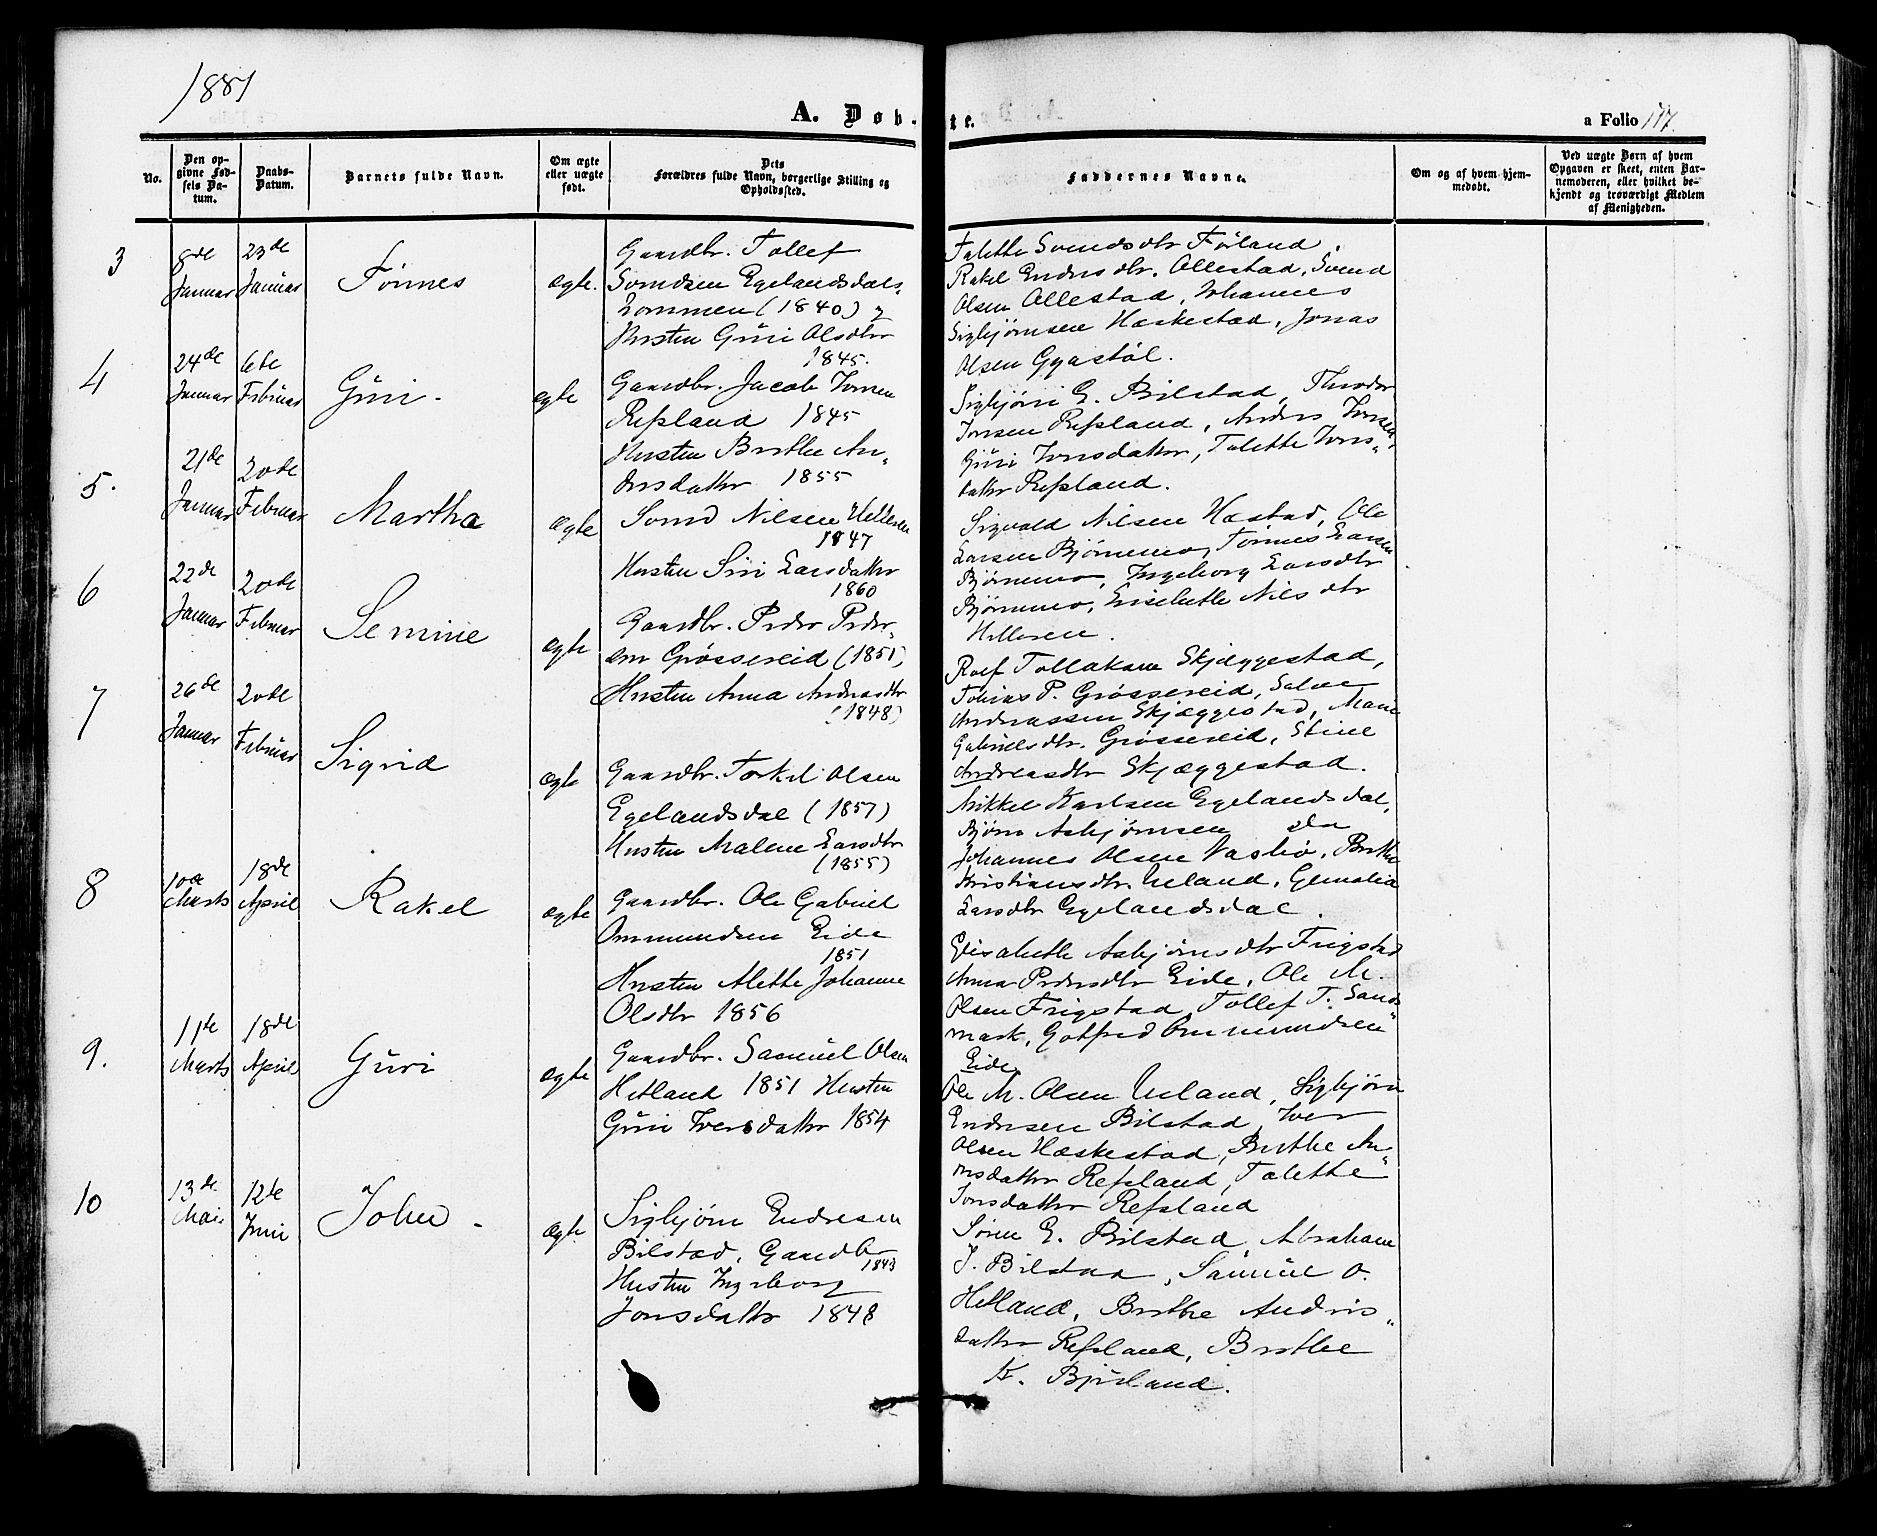 1881
A. Døb.
te.
a Folio 117.
No.
Den op-
givne Fød-
sels Da-
tum.
Daabs-
Datum.
Barnets fulde Navn.
Om ægte
eller uægte
født.
Dets
Forældres fulde Navn, borgerlige Stilling og
Opholdssted.
Faddernes Navne.
Om og af hvem hjem-
medøbt.
Ved uægte Børn af hvem
Opgaven er skeet, enten Bar-
nemoderen, eller hvilket be-
kjendt og troværdigt Medlem
af Menigheden.
3
8de
Januar
23de
Januar
Tønnes
ægte.
Gaardbr. Tollef
Svendsen Egelandsdals-
Lommen (1840) og
Hustru Guri Olsdtr
1845.
Talette Svendsdtr Føiland,
Rakel Endresdtr. Ollestad, Svend
Olsen Ollestad, Johannes
Sigbjørnsen Hæskestad, Jonas
Olsen Gyastøl.
4
24de
Januar
6te
Februar
Guri.
ægte
Gaardbr. Jacob Jonsen
Refsland 1845
Hustru Berthe An-
dersdatter 1855
Sigbjørn E. Bilstad, Theodor
Jonsen Refsland, Anders Jonsen,
Guri Jonsdatter, Talette Jons-
datter Refsland.
5.
21de
Januar
20de
Februar
Martha
ægte
Svend Nilsen Helleren
1847
Hustru Siri Larsdatter
1860
Sigvald Nilsen Hæstad, Ole
Larsen Bjørnemo, Tønnes Larsen
Bjørnemo, Ingeborg Larsdtr
Bjørnemo, Lisebeth Nilsdtr
Helleren.
6
22de
Januar
20de
Februar
Semine
ægte
Gaardbr. Peder Peder-
sen Grøssereid (1851)
Hustru Anna Andreasdtr
(1848)
Rolf Tollaksen Skjæggestad,
Tobias P. Grøssereid, Salve
Andreassen Skjæggestad, Maren
Gabrielsdtr. Grøssereid, Stine
Andreasdtr Skjæggestad.
7
26de
Januar
20de
Februar
Sigrid
ægte
Gaardbr. Torkel Olsen
Egelandsdal (1857)
Hustru Malene Larsdtr
(1855)
Mikkel Karlsen Egelandsdal,
Bjørn Asbjørnsen sdr
Johannes Olsen Vasbø, Berthe
Kristiansdtr. Ueland, Gemalia
Larsdtr Egelandsdal.
8
10de
Marts
18de
April
Rakel
ægte
Gaardbr. Ole Gabriel
Ommundsen Eide
1851
Hustru Alette Johanne
Olsdtr 1856
Elisabeth Asbjørnsdtr Frigstad
Anna Pedersdtr Eide, Ole M.
Olsen Frigstad, Tollef T. Sand-
mark, Gotfred Ommundsen
Eide
9.
11te
Marts
18de
April
Guri
ægte
Gaardbr. Samuel Olsen
Hetland 1851 Hustru
Guri Iversdatter 1854
Ole M. Olsen Ueland, Sigbjørn
Endresen Bilstad, Iver
Olsen Hæskestad, Berthe An-
dersdatter Refsland, Talette
Jonsdatter Refsland
10
13de
Mai
12te
Juni
John.
ægte
Sigbjørn Endresen
Bilstad, Gaardbr
1843
Hustru Ingeborg
Jonsdatter 1848
Søren E. Bilstad, Abraham
J. Bilstad, Samuel O.
Hetland, Berthe Anders-
datter Refsland, Berthe
K. Bjuland.